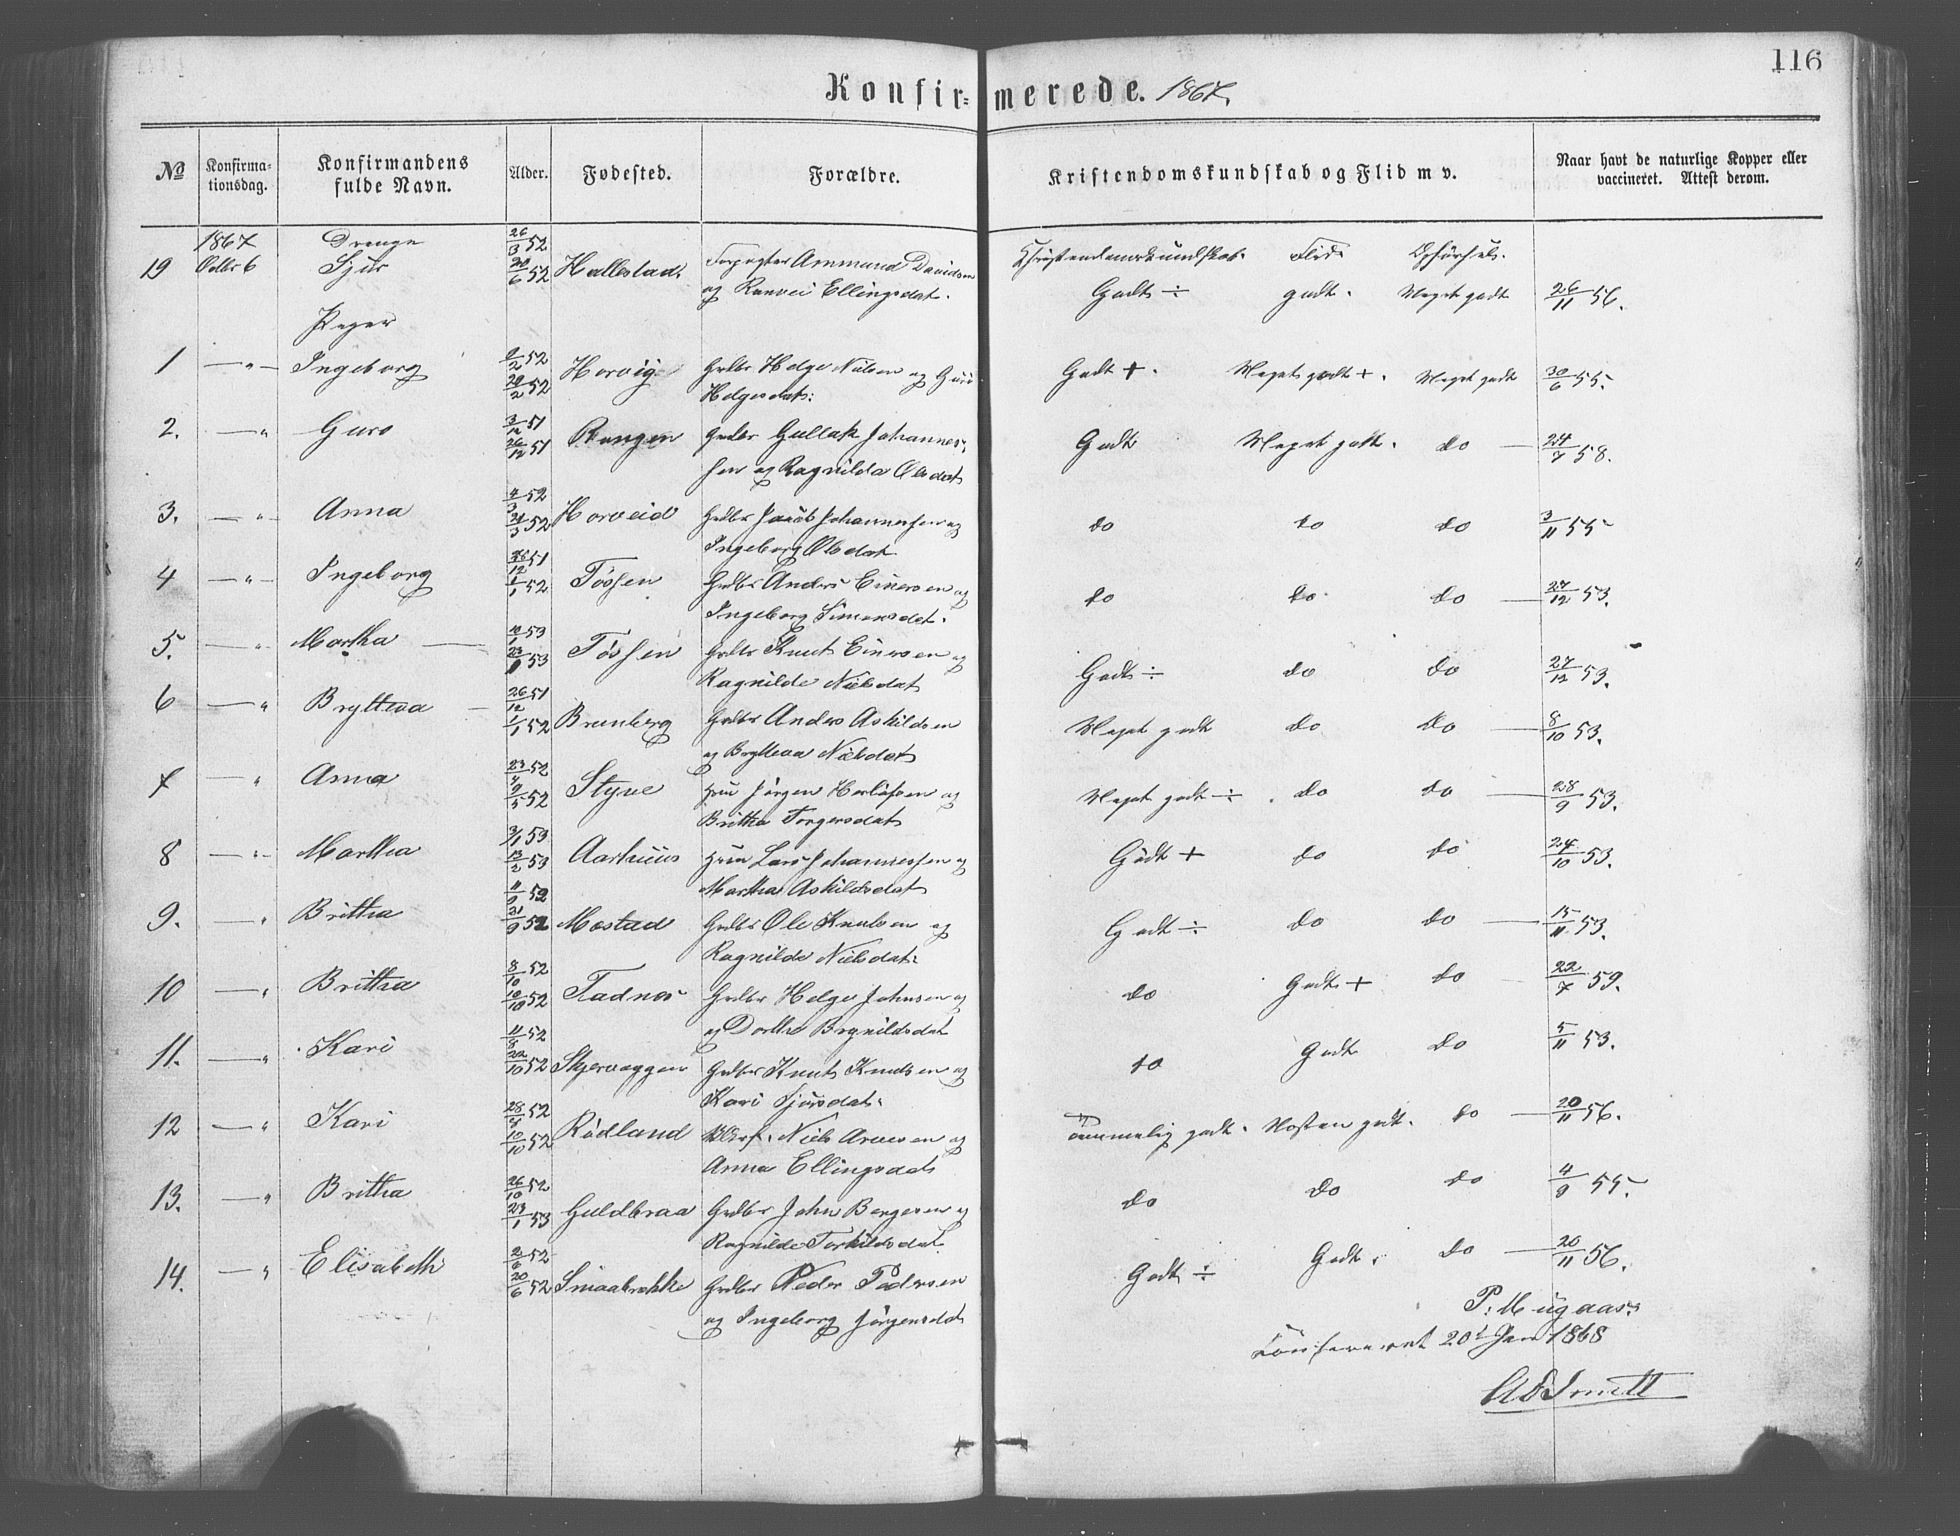 116
Konfir= merede. 1867.
No
Konfirma-
tionsdag.
Konfirmandens
fulde Navn.
Alder.
Fødested.
Forældre.
Kristendomskundskab og Flid m v.
Naar havt de naturlige Kopper eller
vaccineret. Attest derom.
1867 Drenge 26/3 52
19 Octbr 6 Sjur 20/6 52 Hallestad. Forpagter Ammund Davidsen
og Ranvei Ellingsdat.
Christendomskundskab. Flid. Opførsel.
Godt ÷ godt. Meget godt 26/11 56.
Peger
1 — " — Ingeborg 2/2 52 29/2 52 Horvig Grdbr Helge Nilsen og Guro
Helgesdat: Godt +. Meget godt +. Meget godt 30/6 55.
2. — " Guro 3/12 51 26/12 51 Rongen Grdbr Gullak Johannes-
sen og Ragnilda Olsdat Godt Meget godt. do — 24/7 58.
3. — " — Anna 4/3 52 21/3 52 Horveid Grdbr Jacob Johannessen og
Ingeborg Olsdat do do do 3/11 55
4 — " — Ingeborg 26/12 51 1/1 52 Tøssen Grdbr Anders Einersen og
Ingeborg Simonsdat. do do do — 27/12 53.
5. — " — Martha — 12/1 53 23/1 53 Tøssen Grdbr Knut Einersen og
Ragnilde Nielsdat Godt ÷ do do 27/12 53.
6 — " Brytteva — 26/12 51 1/1 52 Brunberg Grdbr Anders Askildsen
og Brytteva Nielsdat Meget godt do do 8/10 53.
7 — " Anna 23/4 52 9/5 52 Styve Hmd Jørgen Herlofsen og
Britha Torgersdat Meget godt ÷. do do — 28/9 53.
8 — " — Martha 3/1 53 13/2 53 Aarhuus Hmd Lars Johannessen og
Martha Askildsdat Godt + do do 24/10 53.
9. — " Brittha 11/9 52 21/9 52 Mostad Grdbr Ole Knutsen og
Ragnilde Nielsdat: Godt ÷ do do — 15/11 53.
10 — " Brittha 8/10 52 10/10 52 Fladnes Grdbr Helge Johnsen og
og Dorthe Brynildsdat do Godt + do — 22/7 59.
11. — " Kari 11/8 52 22/10 52 Skjerveggen Grdbr Knut Knudsen og
Kari Sjursdat. do Godt do 5/11 53.
12 — " Kari 28/9 52 10/10 52 Rødland Niels Arnesen og
Anna Ellingsdat Temmelig godt. Næsten godt. do — 20/11 56.
13. — " Brittha 26/10 52 23/1 53 Guldbraa Grdbr John Bergesen og
Ragnilde Torkildsdat do do do 4/9 55.
14. — " Elisabeth 2/6 52 20/6 52 Smaabrekke Grdbr Peder Pedersen
og Ingeborg Jørgensdat Godt ÷ Godt. do — 20/11 56.
P. Mugaas:
Confereret 20d Jan 1868